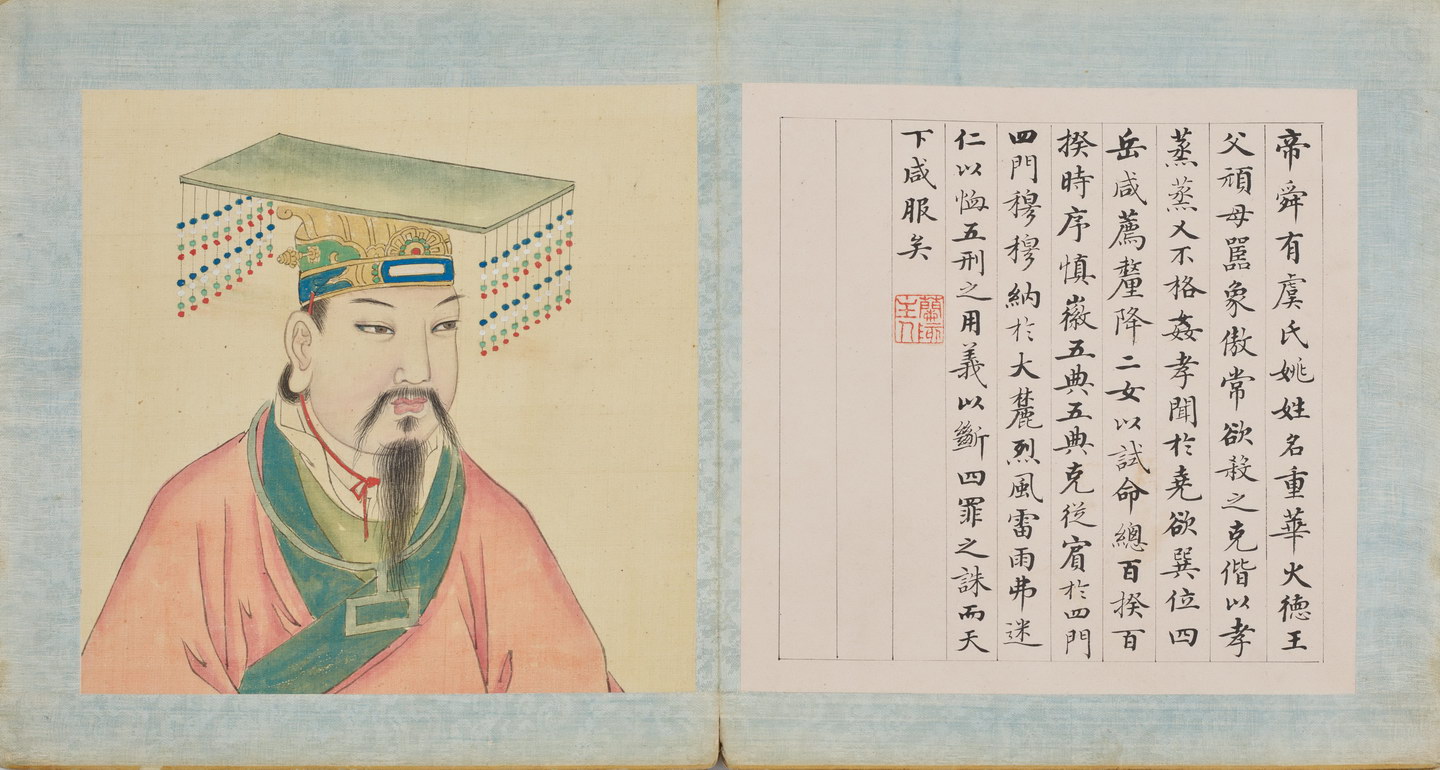 帝舜有虞氏姚姓名重華火德王
父頑母嚚象傲常欲殺之克偕以孝
蒸蒸乂不格姦孝聞於堯欲巽位四
岳咸薦釐降二女以試命總百揆百
揆時序慎徽五典五典克從賓於四門
四門穆穆納於大麓烈風雷雨弗迷
仁以恤五刑之用義以斷四罪之誅而天
下咸服矣